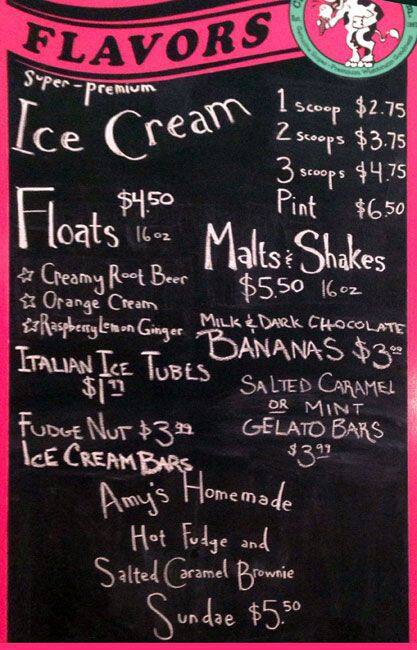 FLAVORS
Super-premium
Ice Cream
1 scoop $2.75
2 scoops $3.75
3 scoops $4.75
Pint $6.50
Floats $4.50 16 oz
☆ Creamy Root Beer
☆ Orange Cream
☆ Raspberry Lemon Ginger
Malts & Shakes
$5.50 16 oz
MILK & DARK CHOCOLATE
BANANAS $3.99
ITALIAN ICE TUBES
$1.99
SALTED CARAMEL
OR MINT
GELATO BARS
$3.99
FUDGE NUT $3.99
ICE CREAM BARS
Amy's Homemade
Hot Fudge and
Salted Caramel Brownie
Sundae $5.50